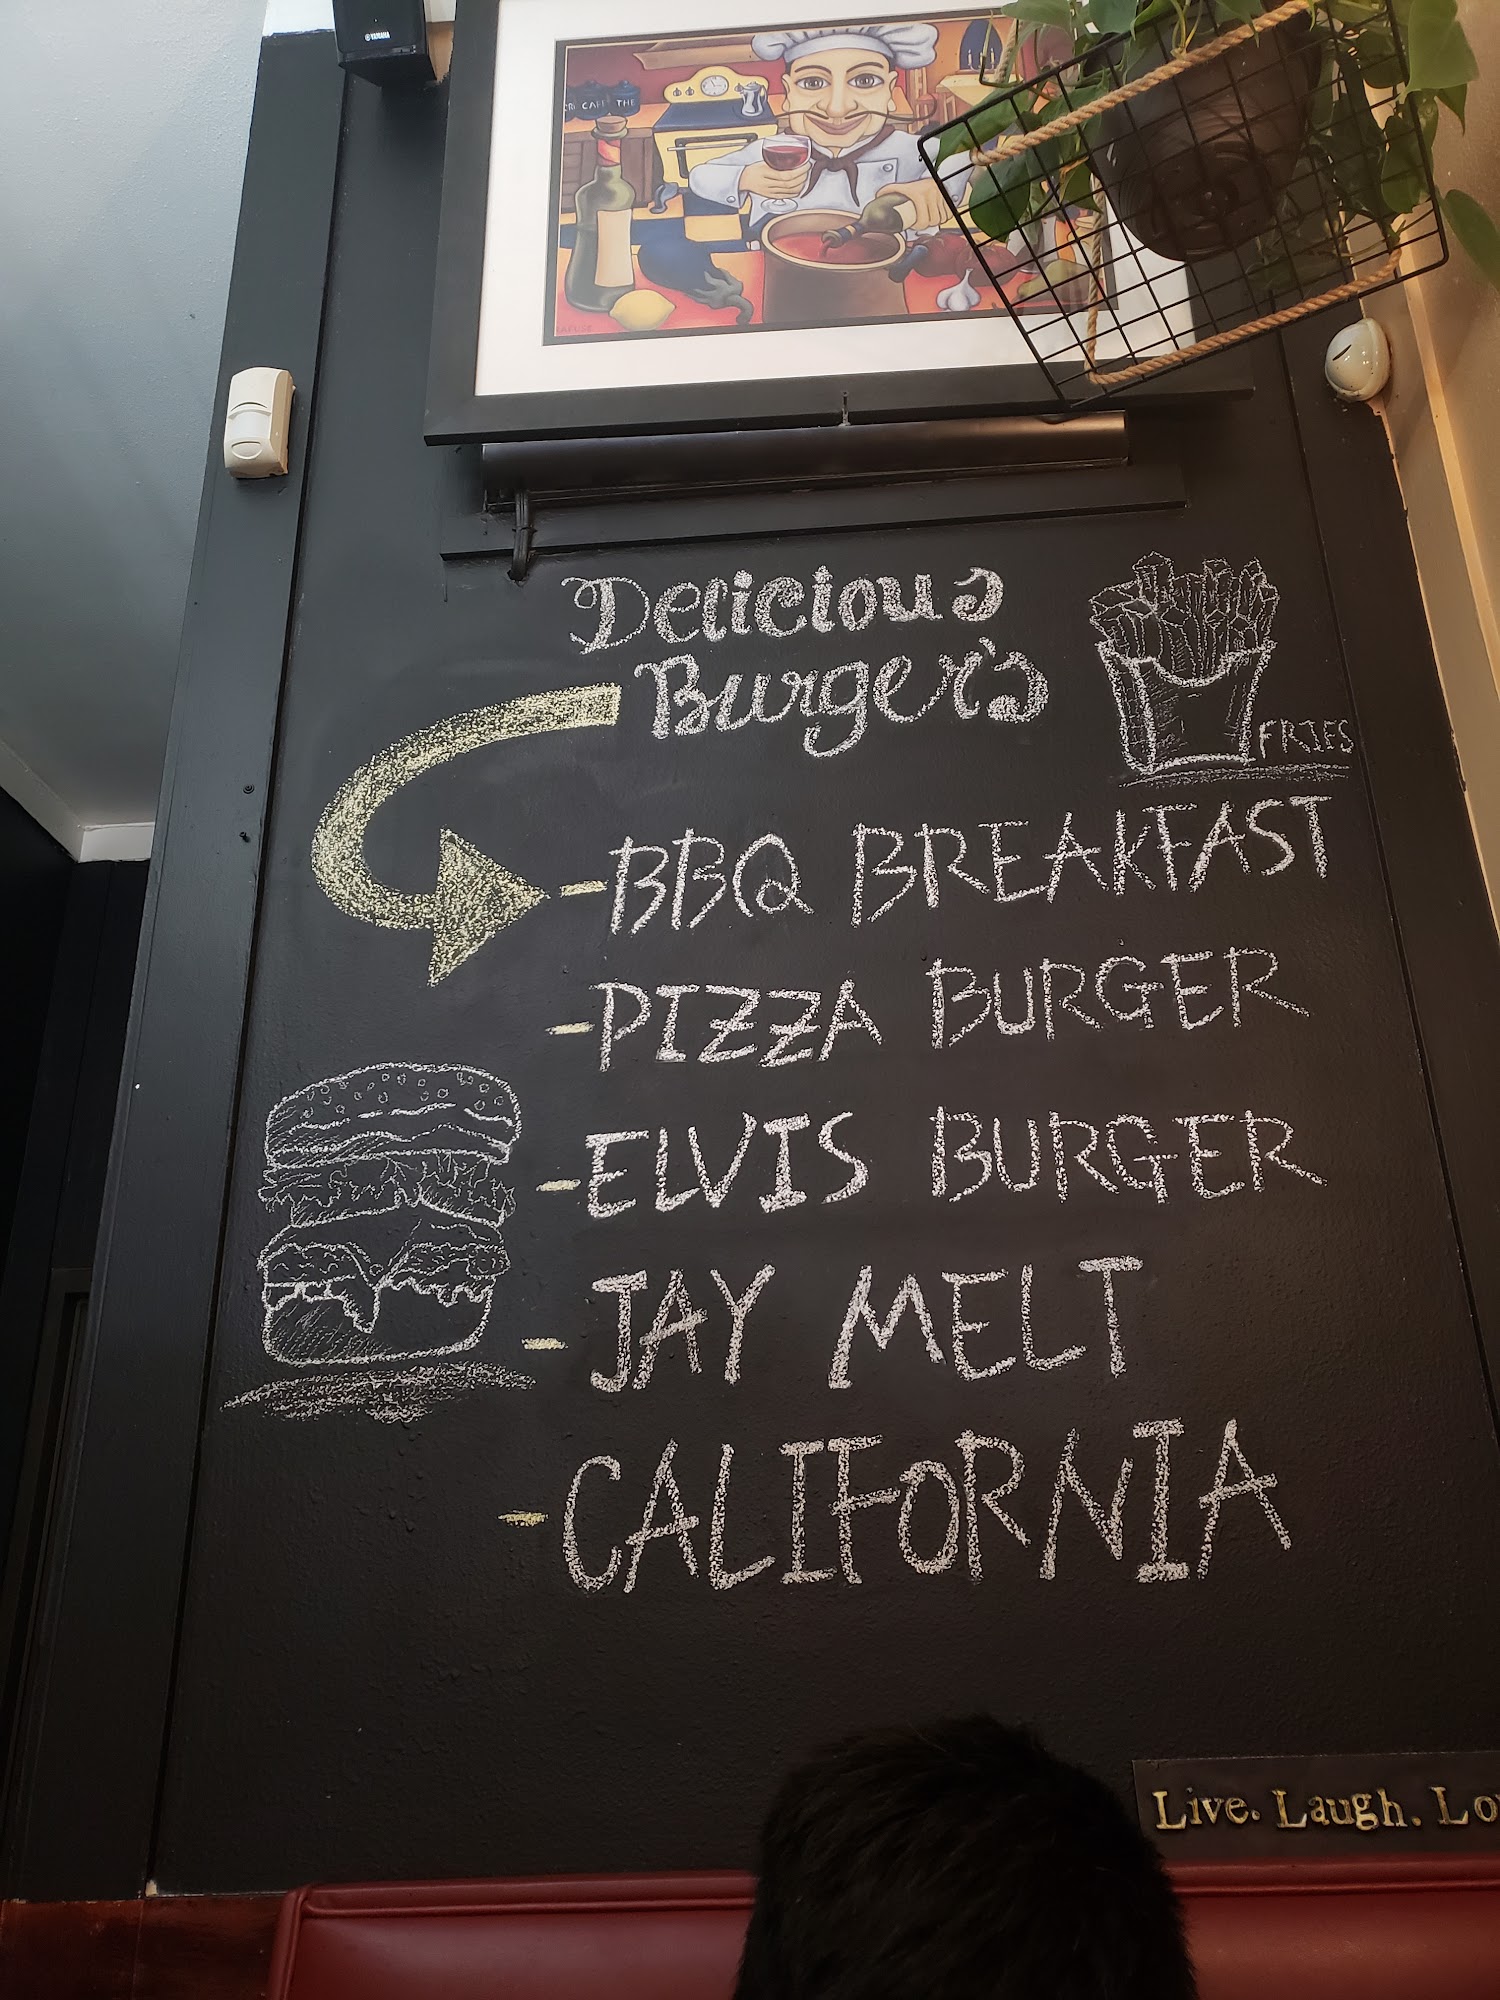 YAMAHA
CAFE THE
Delicious
Burger's
FRIES
-BBQ BREAKFAST
-PIZZA BURGER
-ELVIS BURGER
-JAY MELT
-CALIFORNIA
Live. Laugh.